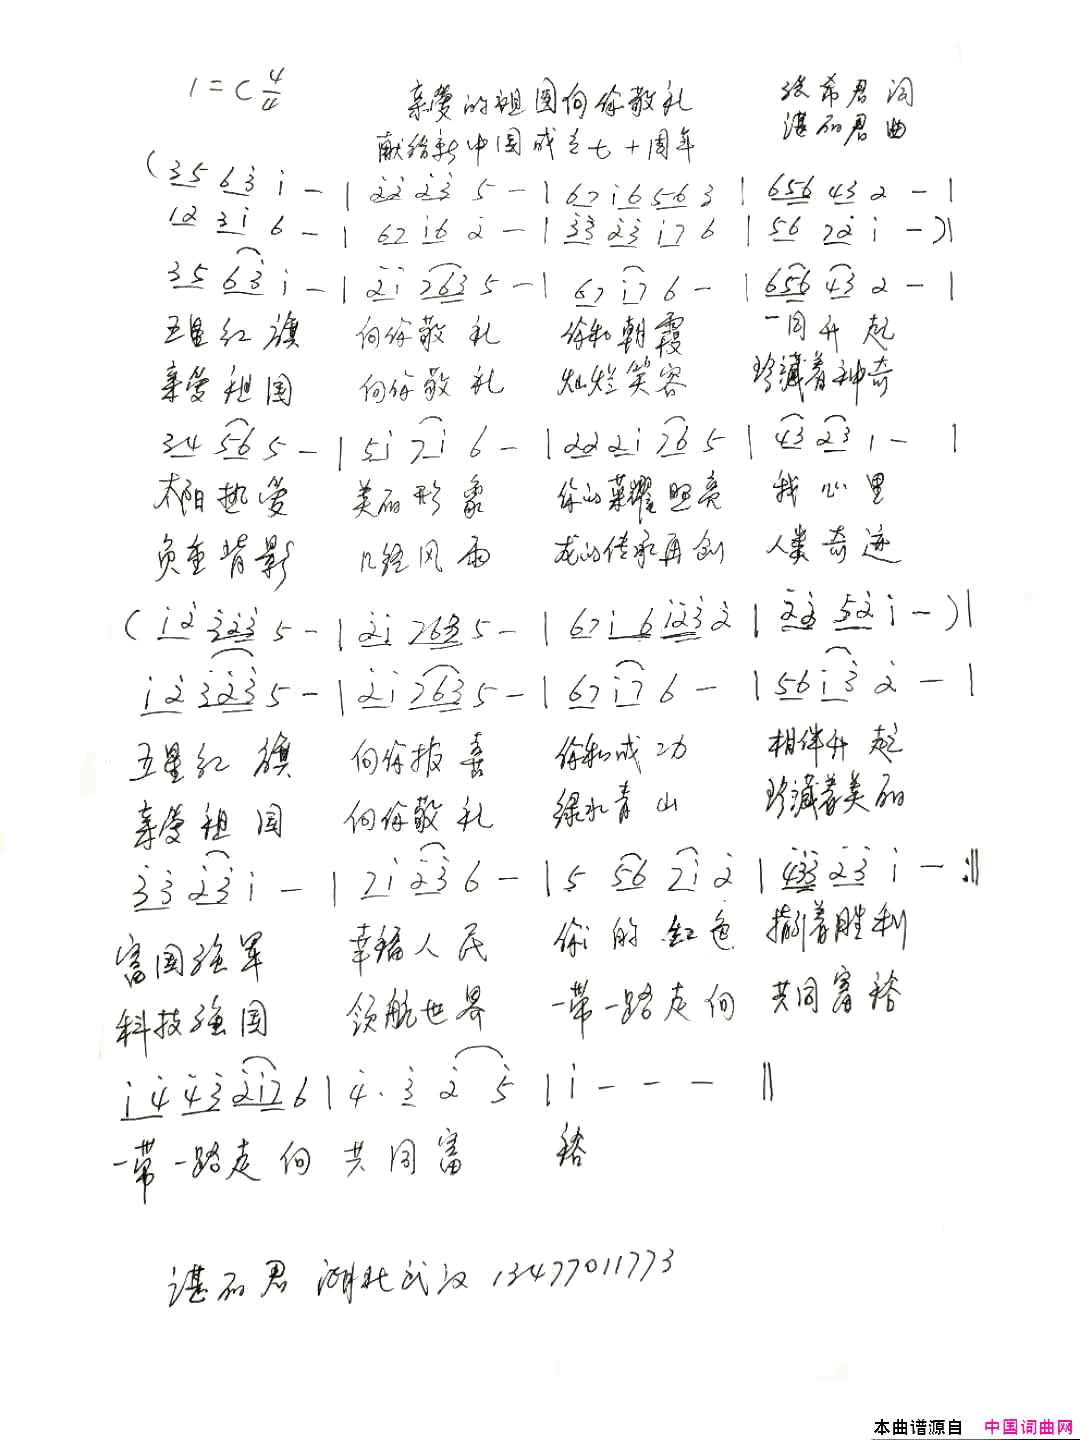 1=C 4/4 亲爱的祖国向你敬礼 张希君 词
献给新中国成立七十周年 谌丽君 曲
(35 63 i - | 22 23 5 - | 67 i6 56 3 | 656 43 2 - |
12 3i 6 - | 67 i6 2 - | 33 23 i7 6 | 56 72 i - )|
35 63 i - | 2i 763 5 - | 67 i7 6 - | 656 43 2 - |
五星红旗 向你敬礼 你和朝霞 一同升起
亲爱祖国 向你敬礼 灿烂笑容 珍藏着神奇
34 56 5 - | 5i 7i 6 - | 222i 76 5 | 43 23 1 - |
太阳热爱 美丽形象 你的荣耀照亮 我心里
负重背影 几经风雨 龙的传承再创 人类奇迹
(i2 323 5 - | 2i 763 5 - | 67 i6 i23 2 | 22 52 i - )|
i2 323 5 - | 2i 763 5 - | 67 i7 6 - | 56 i3 2 - |
五星红旗 向你报喜 你和成功 相伴升起
亲爱祖国 向你敬礼 绿水青山 珍藏着美丽
33 23 i - | 7i 23 6 - | 5 56 7i 2 | 433 23 i - :‖
富国强军 幸福人民 你的红色 指引着胜利
科技强国 领航世界 一带一路走向 共同富裕
i4 43 2i7 6 | 4· 3 2 5 | i - - - ‖
一带一路走向 共同富 裕
谌丽君 湖北武汉 13477011773
本曲谱源自 中国词曲网